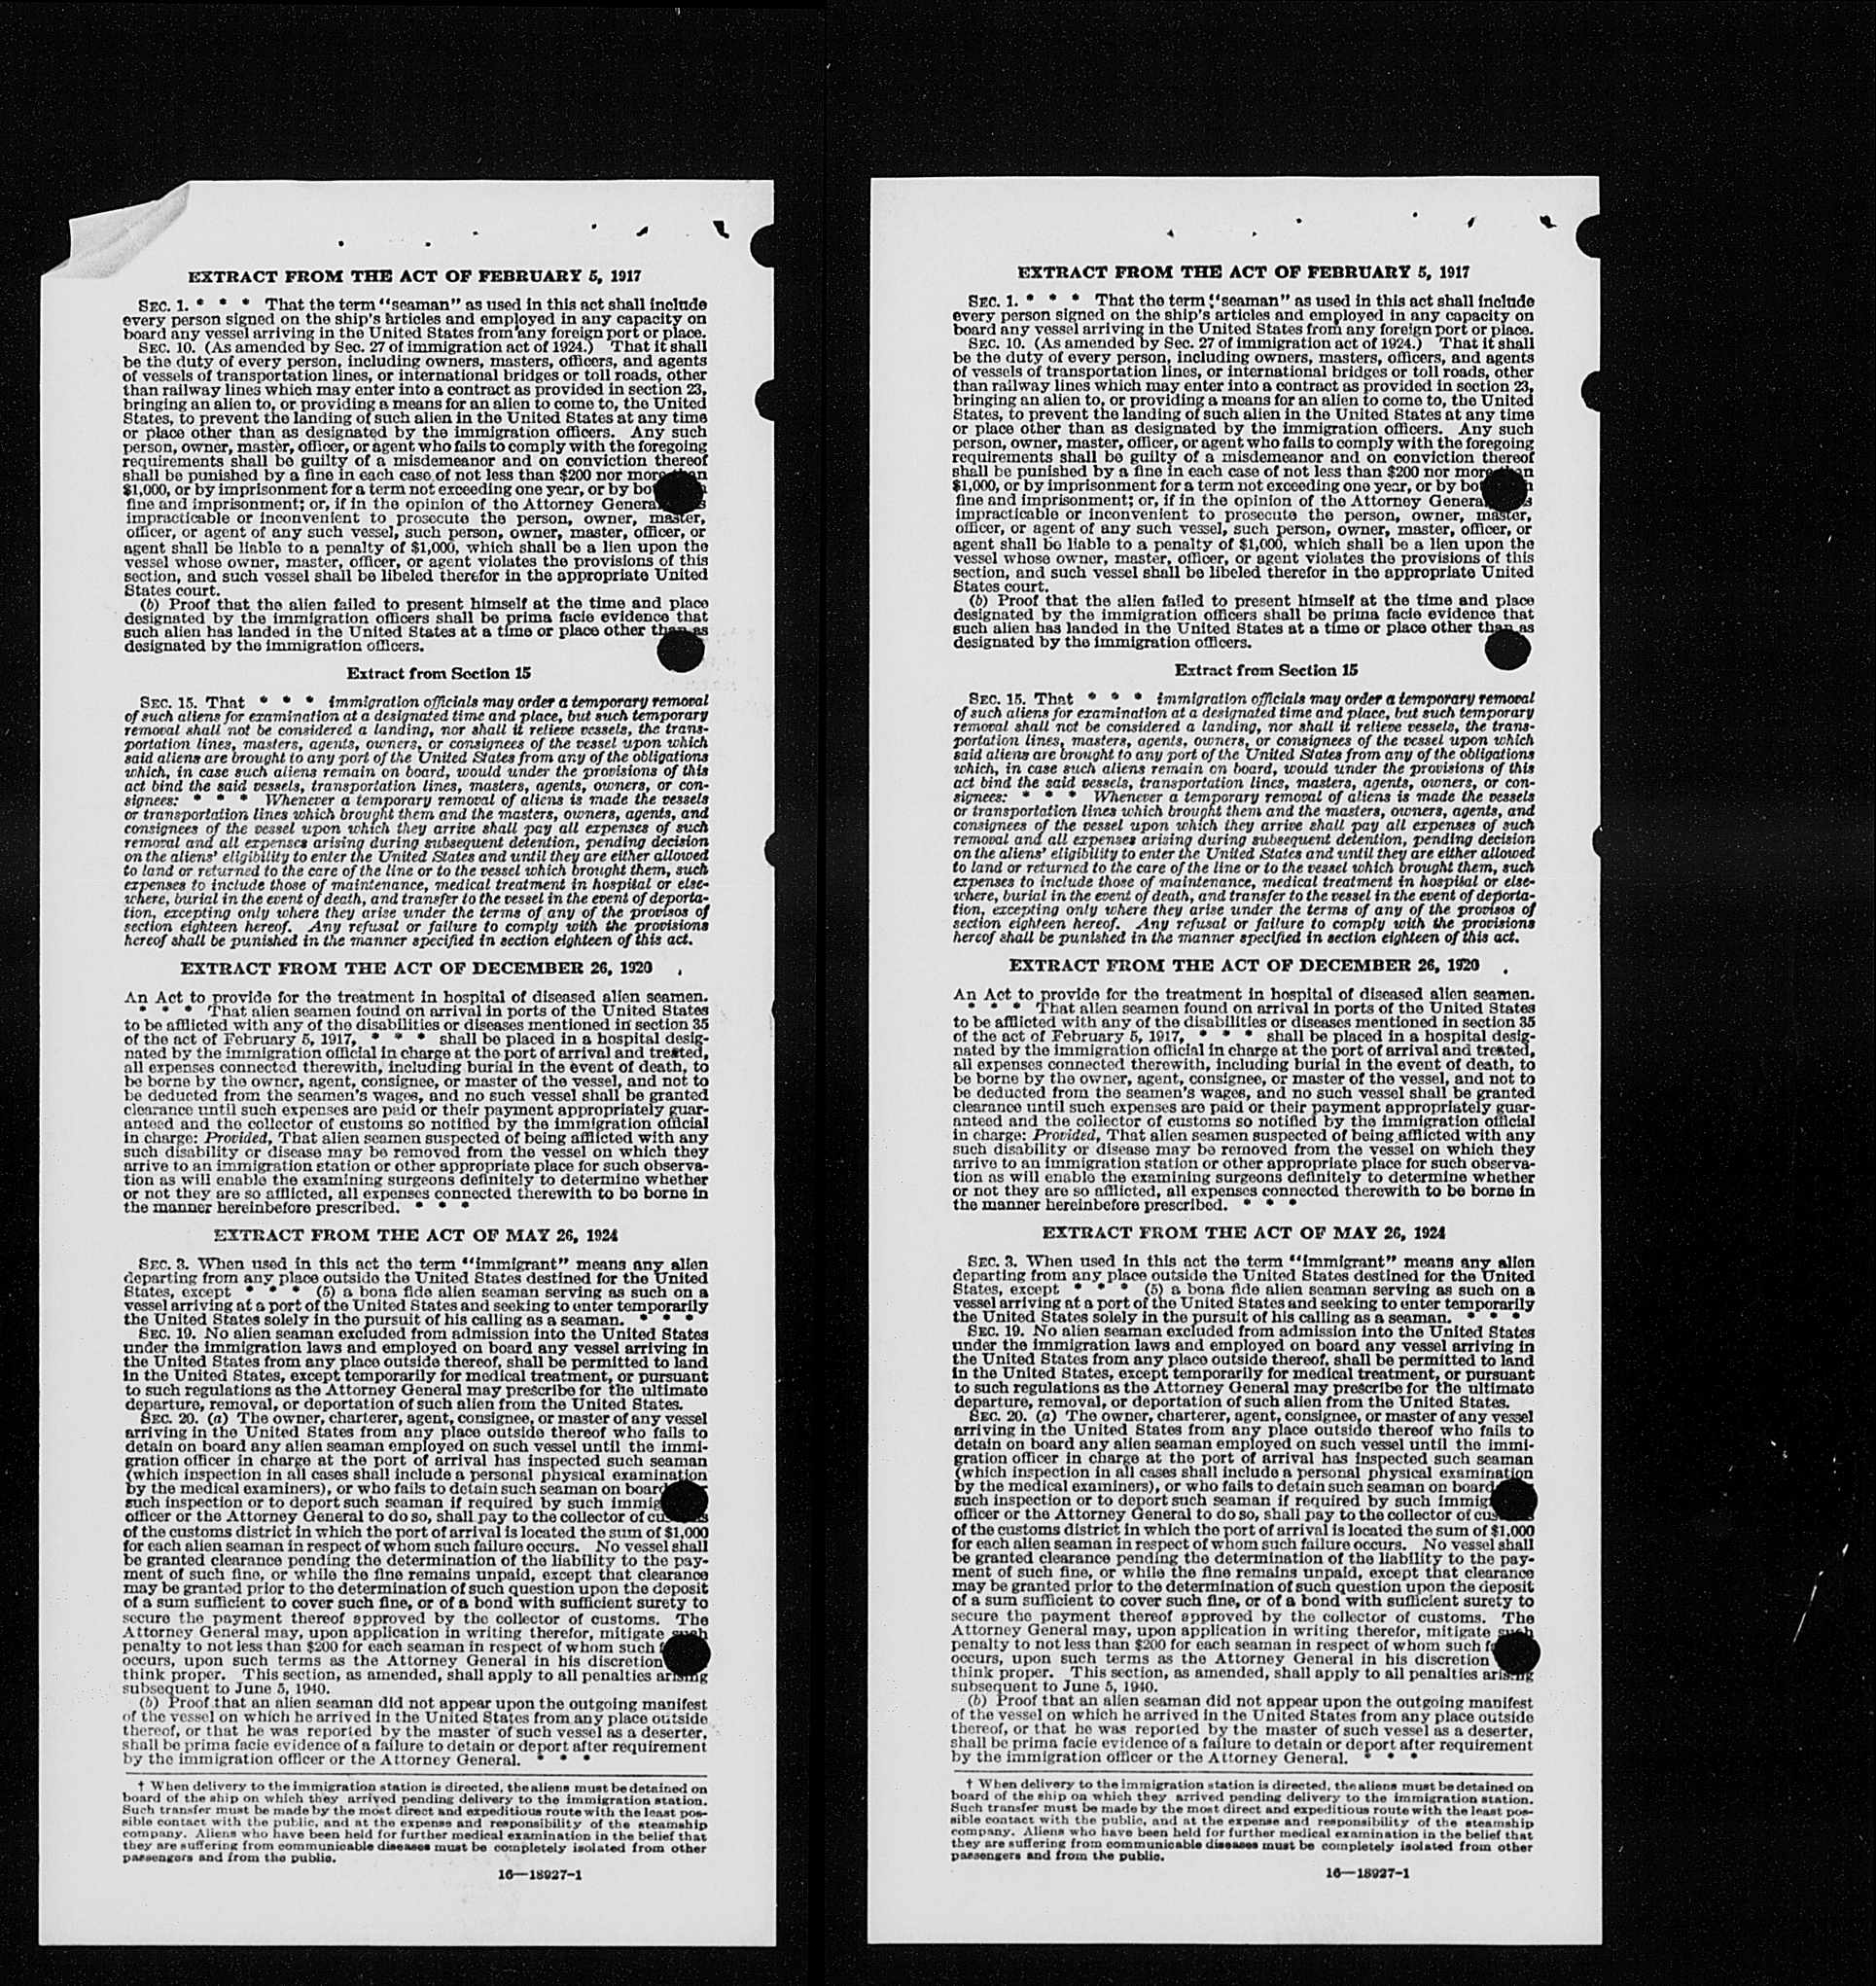 EXTRACT FROM THE ACT OF FEBRUARY 5, 1917
SEC. 1. * * * That the term "seaman" as used in this act shall include
every person signed on the ship's articles and employed in any capacity on
board any vessel arriving in the United States from any foreign port or place.
SEC. 10. (As amended by Sec. 27 of immigration act of 1924.) That it shall
be the duty of every person, including owners, masters, officers, and agents
of vessels of transportation lines, or international bridges or toll roads, other
than railway lines which may enter into a contract as provided in section 23,
bringing an alien to, or providing a means for an alien to come to, the United
States, to prevent the landing of such alien in the United States at any time
or place other than as designated by the immigration officers. Any such
person, owner, master, officer, or agent who fails to comply with the foregoing
requirements shall be guilty of a misdemeanor and on conviction thereof
shall be punished by a fine in each case of not less than $200 nor more than
$1,000, or by imprisonment for a term not exceeding one year, or by
fine and imprisonment; or, if in the opinion of the Attorney General
impracticable or inconvenient to prosecute the person, owner, master,
officer, or agent of any such vessel, such person, owner, master, officer, or
agent shall be liable to a penalty of $1,000, which shall be a lien upon the
vessel whose owner, master, officer, or agent violates the provisions of this
section, and such vessel shall be libeled therefor in the appropriate United
States court.
(b) Proof that the alien failed to present himself at the time and place
designated by the immigration officers shall be prima facie evidence that
such alien has landed in the United States at a time or place other than as
designated by the immigration officers.
Extract from Section 15
SEC. 15. That * * * immigration officials may order a temporary removal
of such aliens for examination at a designated time and place, but such temporary
removal shall not be considered a landing, nor shall it relieve vessels, the trans-
portation lines, masters, agents, owners, or consignees of the vessel upon which
said aliens are brought to any port of the United States from any of the obligations
which, in case such aliens remain on board, would under the provisions of this
act bind the said vessels, transportation lines, masters, agents, owners, or con-
signees: * * * Whenever a temporary removal of aliens is made the vessels
or transportation lines which brought them and the masters, owners, agents, and
consignees of the vessel upon which they arrive shall pay all expenses of such
removal and all expenses arising during subsequent detention, pending decision
on the aliens' eligibility to enter the United States and until they are either allowed
to land or returned to the care of the line or to the vessel which brought them, such
expenses to include those of maintenance, medical treatment in hospital or else-
where, burial in the event of death, and transfer to the vessel in the event of deporta-
tion, excepting only where they arise under the terms of any of the provisos of
section eighteen hereof. Any refusal or failure to comply with the provisions
hereof shall be punished in the manner specified in section eighteen of this act.
EXTRACT FROM THE ACT OF DECEMBER 26, 1920
An Act to provide for the treatment in hospital of diseased alien seamen.
* * * That alien seamen found on arrival in ports of the United States
to be afflicted with any of the disabilities or diseases mentioned in section 35
of the act of February 5, 1917, * * * shall be placed in a hospital desig-
nated by the immigration official in charge at the port of arrival and treated,
all expenses connected therewith, including burial in the event of death, to
be borne by the owner, agent, consignee, or master of the vessel, and not to
be deducted from the seamen's wages, and no such vessel shall be granted
clearance until such expenses are paid or their payment appropriately guar-
anteed and the collector of customs so notified by the immigration official
in charge: Provided, That alien seamen suspected of being afflicted with any
such disability or disease may be removed from the vessel on which they
arrive to an immigration station or other appropriate place for such observa-
tion as will enable the examining surgeons definitely to determine whether
or not they are so afflicted, all expenses connected therewith to be borne in
the manner hereinbefore prescribed. * * *
EXTRACT FROM THE ACT OF MAY 26, 1924
SEC. 3. When used in this act the term "immigrant" means any alien
departing from any place outside the United States destined for the United
States, except * * * (5) a bona fide alien seaman serving as such on a
vessel arriving at a port of the United States and seeking to enter temporarily
the United States solely in the pursuit of his calling as a seaman. * * *
SEC. 19. No alien seaman excluded from admission into the United States
under the immigration laws and employed on board any vessel arriving in
the United States from any place outside thereof, shall be permitted to land
in the United States, except temporarily for medical treatment, or pursuant
to such regulations as the Attorney General may prescribe for the ultimate
departure, removal, or deportation of such alien from the United States.
SEC. 20. (a) The owner, charterer, agent, consignee, or master of any vessel
arriving in the United States from any place outside thereof who fails to
detain on board any alien seaman employed on such vessel until the immi-
gration officer in charge at the port of arrival has inspected such seaman
(which inspection in all cases shall include a personal physical examination
by the medical examiners), or who fails to detain such seaman on board
such inspection or to deport such seaman if required by such
officer or the Attorney General to do so, shall pay to the collector of
of the customs district in which the port of arrival is located the sum of $1,000
for each alien seaman in respect of whom such failure occurs. No vessel shall
be granted clearance pending the determination of the liability to the pay-
ment of such fine, or while the fine remains unpaid, except that clearance
may be granted prior to the determination of such question upon the deposit
of a sum sufficient to cover such fine, or of a bond with sufficient surety to
secure the payment thereof approved by the collector of customs. The
Attorney General may, upon application in writing therefor, mitigate such
penalty to not less than $200 for each seaman in respect of whom such
occurs, upon such terms as the Attorney General in his discretion
think proper. This section, as amended, shall apply to all penalties arising
subsequent to June 5, 1940.
(b) Proof that an alien seaman did not appear upon the outgoing manifest
of the vessel on which he arrived in the United States from any place outside
thereof, or that he was reported by the master of such vessel as a deserter,
shall be prima facie evidence of a failure to detain or deport after requirement
by the immigration officer or the Attorney General. * * *
† When delivery to the immigration station is directed, the aliens must be detained on
board of the ship on which they arrived pending delivery to the immigration station.
Such transfer must be made by the most direct and expeditious route with the least pos-
sible contact with the public, and at the expense and responsibility of the steamship
company. Aliens who have been held for further medical examination in the belief that
they are suffering from communicable diseases must be completely isolated from other
passengers and from the public.
16—18927-1
EXTRACT FROM THE ACT OF FEBRUARY 5, 1917
SEC. 1. * * * That the term "seaman" as used in this act shall include
every person signed on the ship's articles and employed in any capacity on
board any vessel arriving in the United States from any foreign port or place.
SEC. 10. (As amended by Sec. 27 of immigration act of 1924.) That it shall
be the duty of every person, including owners, masters, officers, and agents
of vessels of transportation lines, or international bridges or toll roads, other
than railway lines which may enter into a contract as provided in section 23,
bringing an alien to, or providing a means for an alien to come to, the United
States, to prevent the landing of such alien in the United States at any time
or place other than as designated by the immigration officers. Any such
person, owner, master, officer, or agent who fails to comply with the foregoing
requirements shall be guilty of a misdemeanor and on conviction thereof
shall be punished by a fine in each case of not less than $200 nor more than
$1,000, or by imprisonment for a term not exceeding one year, or by
fine and imprisonment; or, if in the opinion of the Attorney General
impracticable or inconvenient to prosecute the person, owner, master,
officer, or agent of any such vessel, such person, owner, master, officer, or
agent shall be liable to a penalty of $1,000, which shall be a lien upon the
vessel whose owner, master, officer, or agent violates the provisions of this
section, and such vessel shall be libeled therefor in the appropriate United
States court.
(b) Proof that the alien failed to present himself at the time and place
designated by the immigration officers shall be prima facie evidence that
such alien has landed in the United States at a time or place other than as
designated by the immigration officers.
Extract from Section 15
SEC. 15. That * * * immigration officials may order a temporary removal
of such aliens for examination at a designated time and place, but such temporary
removal shall not be considered a landing, nor shall it relieve vessels, the trans-
portation lines, masters, agents, owners, or consignees of the vessel upon which
said aliens are brought to any port of the United States from any of the obligations
which, in case such aliens remain on board, would under the provisions of this
act bind the said vessels, transportation lines, masters, agents, owners, or con-
signees: * * * Whenever a temporary removal of aliens is made the vessels
or transportation lines which brought them and the masters, owners, agents, and
consignees of the vessel upon which they arrive shall pay all expenses of such
removal and all expenses arising during subsequent detention, pending decision
on the aliens' eligibility to enter the United States and until they are either allowed
to land or returned to the care of the line or to the vessel which brought them, such
expenses to include those of maintenance, medical treatment in hospital or else-
where, burial in the event of death, and transfer to the vessel in the event of deporta-
tion, excepting only where they arise under the terms of any of the provisos of
section eighteen hereof. Any refusal or failure to comply with the provisions
hereof shall be punished in the manner specified in section eighteen of this act.
EXTRACT FROM THE ACT OF DECEMBER 26, 1920
An Act to provide for the treatment in hospital of diseased alien seamen.
* * * That alien seamen found on arrival in ports of the United States
to be afflicted with any of the disabilities or diseases mentioned in section 35
of the act of February 5, 1917, * * * shall be placed in a hospital desig-
nated by the immigration official in charge at the port of arrival and treated,
all expenses connected therewith, including burial in the event of death, to
be borne by the owner, agent, consignee, or master of the vessel, and not to
be deducted from the seamen's wages, and no such vessel shall be granted
clearance until such expenses are paid or their payment appropriately guar-
anteed and the collector of customs so notified by the immigration official
in charge: Provided, That alien seamen suspected of being afflicted with any
such disability or disease may be removed from the vessel on which they
arrive to an immigration station or other appropriate place for such observa-
tion as will enable the examining surgeons definitely to determine whether
or not they are so afflicted, all expenses connected therewith to be borne in
the manner hereinbefore prescribed. * * *
EXTRACT FROM THE ACT OF MAY 26, 1924
SEC. 3. When used in this act the term "immigrant" means any alien
departing from any place outside the United States destined for the United
States, except * * * (5) a bona fide alien seaman serving as such on a
vessel arriving at a port of the United States and seeking to enter temporarily
the United States solely in the pursuit of his calling as a seaman. * * *
SEC. 19. No alien seaman excluded from admission into the United States
under the immigration laws and employed on board any vessel arriving in
the United States from any place outside thereof, shall be permitted to land
in the United States, except temporarily for medical treatment, or pursuant
to such regulations as the Attorney General may prescribe for the ultimate
departure, removal, or deportation of such alien from the United States.
SEC. 20. (a) The owner, charterer, agent, consignee, or master of any vessel
arriving in the United States from any place outside thereof who fails to
detain on board any alien seaman employed on such vessel until the immi-
gration officer in charge at the port of arrival has inspected such seaman
(which inspection in all cases shall include a personal physical examination
by the medical examiners), or who fails to detain such seaman on board
such inspection or to deport such seaman if required by such
officer or the Attorney General to do so, shall pay to the collector of
of the customs district in which the port of arrival is located the sum of $1,000
for each alien seaman in respect of whom such failure occurs. No vessel shall
be granted clearance pending the determination of the liability to the pay-
ment of such fine, or while the fine remains unpaid, except that clearance
may be granted prior to the determination of such question upon the deposit
of a sum sufficient to cover such fine, or of a bond with sufficient surety to
secure the payment thereof approved by the collector of customs. The
Attorney General may, upon application in writing therefor, mitigate such
penalty to not less than $200 for each seaman in respect of whom such
occurs, upon such terms as the Attorney General in his discretion
think proper. This section, as amended, shall apply to all penalties arising
subsequent to June 5, 1940.
(b) Proof that an alien seaman did not appear upon the outgoing manifest
of the vessel on which he arrived in the United States from any place outside
thereof, or that he was reported by the master of such vessel as a deserter,
shall be prima facie evidence of a failure to detain or deport after requirement
by the immigration officer or the Attorney General. * * *
† When delivery to the immigration station is directed, the aliens must be detained on
board of the ship on which they arrived pending delivery to the immigration station.
Such transfer must be made by the most direct and expeditious route with the least pos-
sible contact with the public, and at the expense and responsibility of the steamship
company. Aliens who have been held for further medical examination in the belief that
they are suffering from communicable diseases must be completely isolated from other
passengers and from the public.
16—18927-1